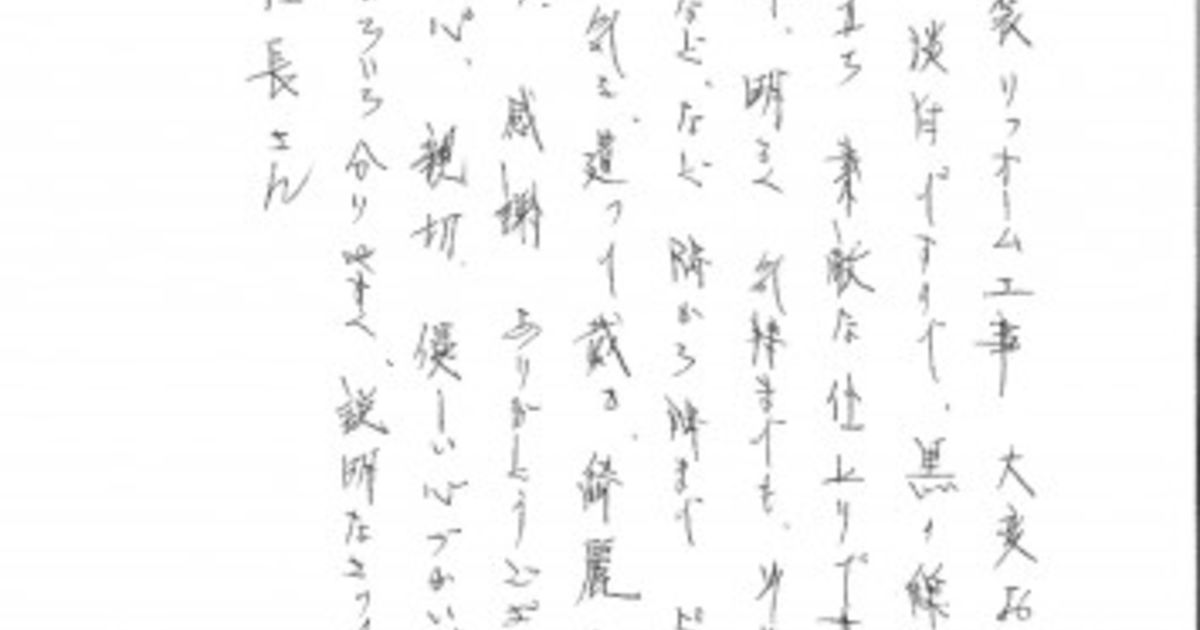 装リフォーム工事 大変お
淡付ですので、黒い線
立ち 素敵な仕上りです
明るく 気持まても、
など、など 隣から隣まで
気を遣って戴き、綺麗
感謝 ありがとうござ
心、親切、優しい心づかい
いろいろ分り安く、説明なさって
長さん